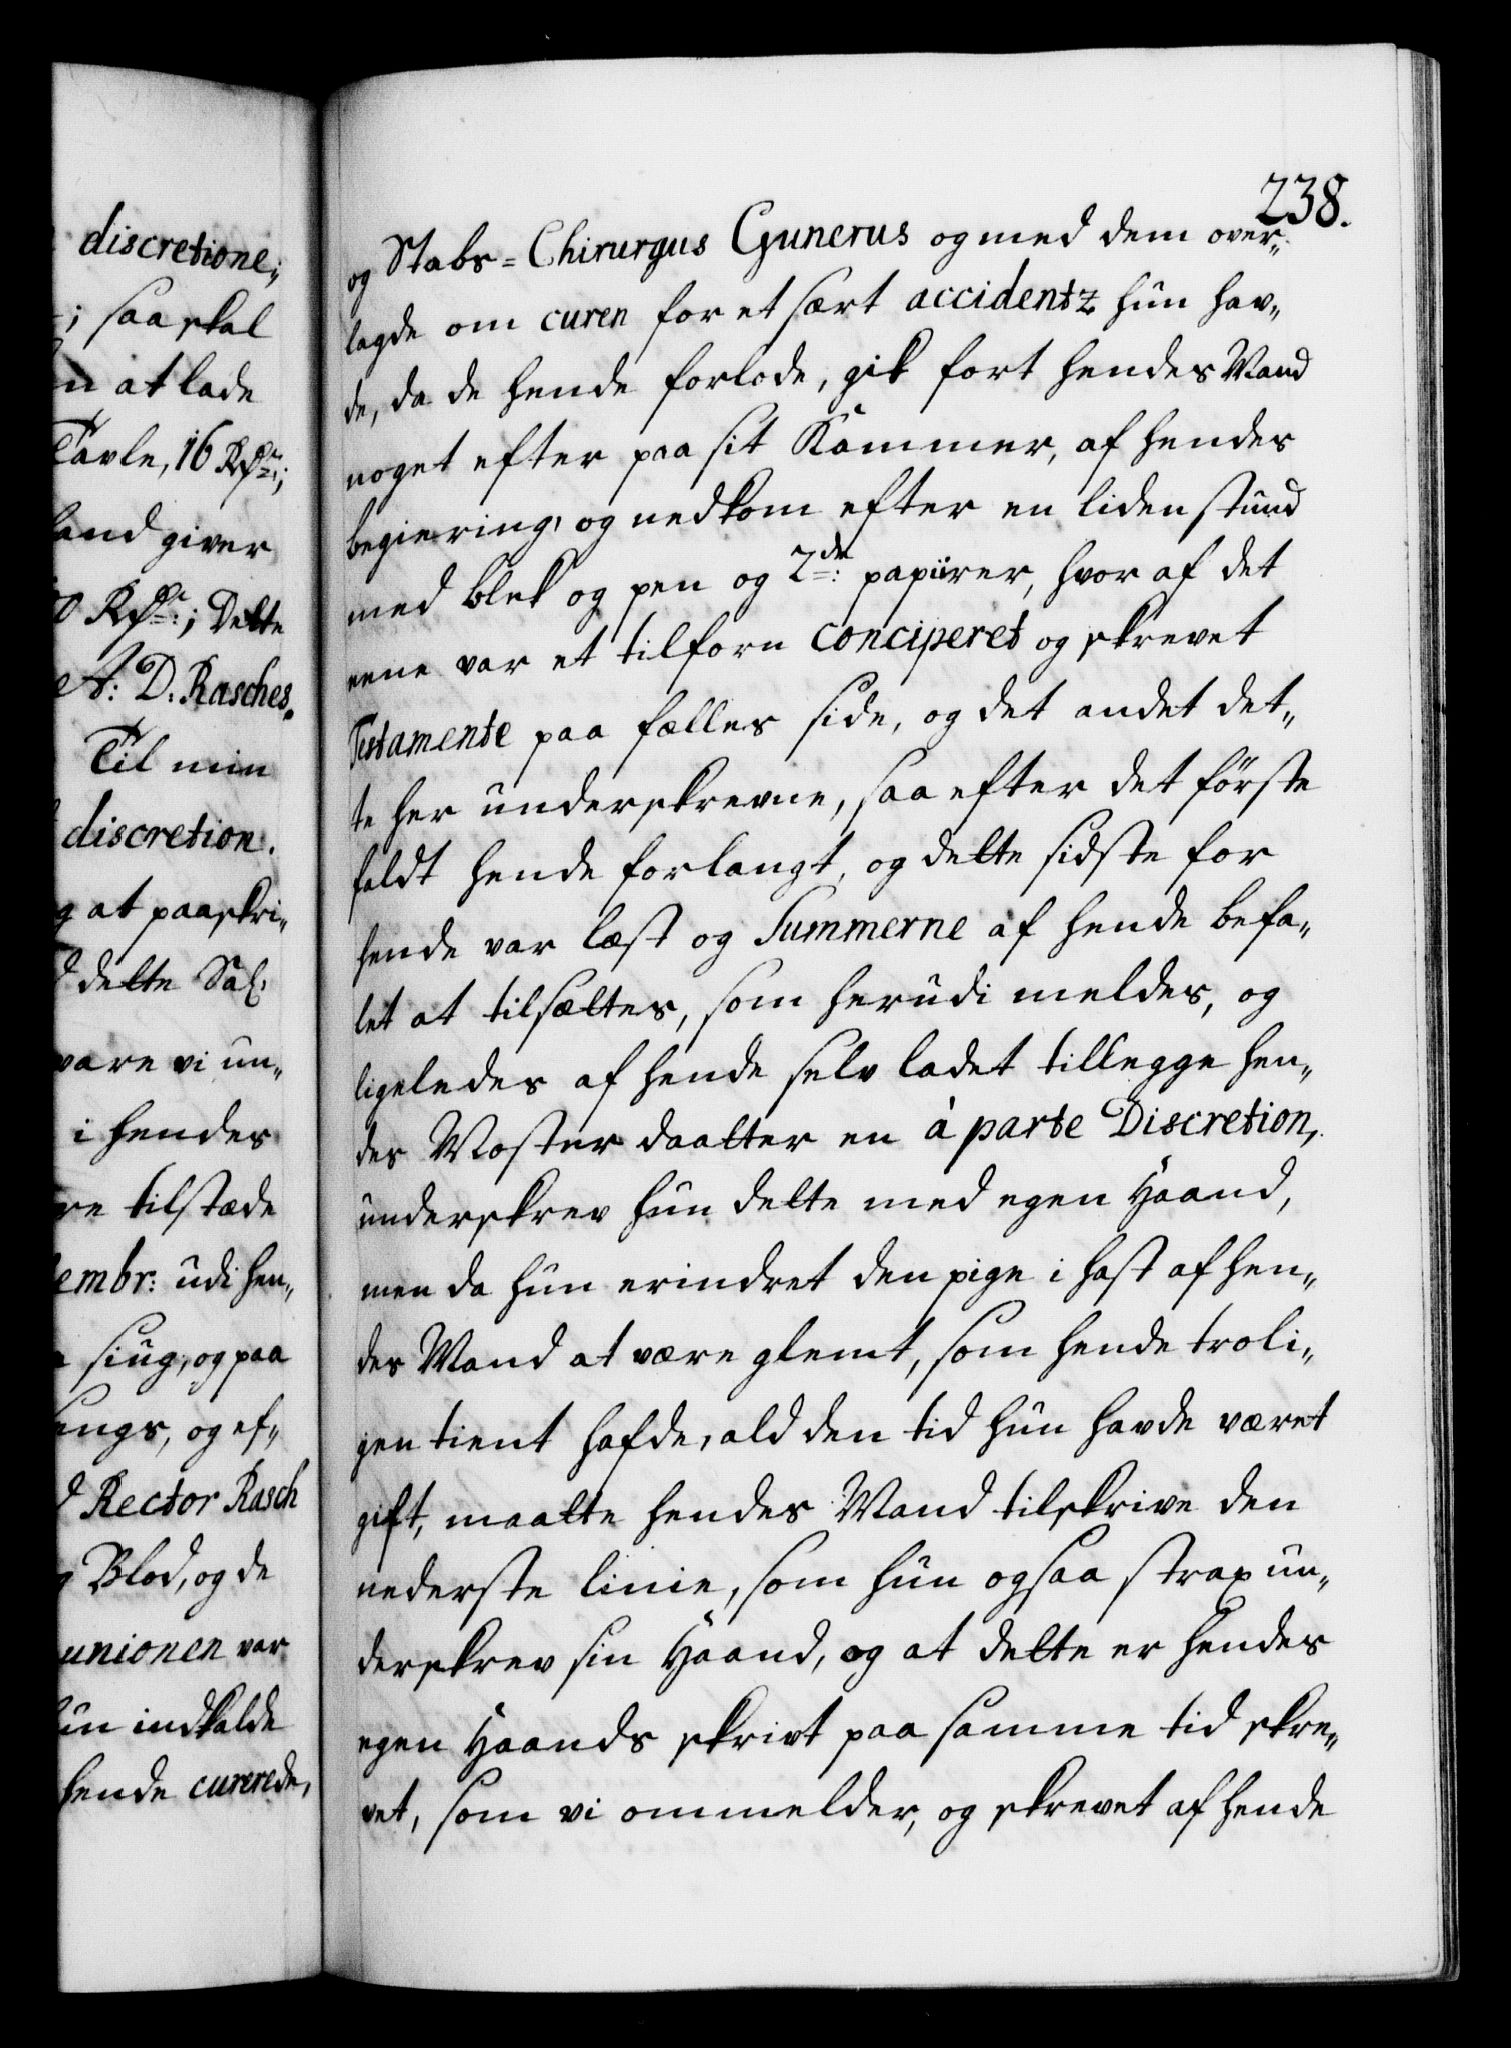 discretione;
; saa skal
n at lade
Tavle, 16 Rdr:;
and giver
0 Rdr:; Dette
A: D: Rasches.
Til min
discretion.
g at paaskri„
dette Sal:
vare vi un„
i hendes
re tilstæde
embr: udi hen„
siug, og paa
engs, og ef„
Rector Rasch
Blod, og de
unionen var
un indkalde
hende curerede,
238.
og Stabs=Chirurgus Gunerus og med dem over„
lagde om curen for et sært accidentz hun hav„
de, da de hende forlode, gik fort hendes Mand
noget efter paa sit Kammer, af hendes
begiering, og nedkom efter en liden stund
med blek og pen og 2de: papiirer, hvor af det
eene var et tilforn conciperet og skrevet
Testamente paa fælles side, og det andet det„
te her underskrevne, saa efter det förste
faldt hende forlangt, og dette sidste for
hende var læst og Summerne af hende befa„
let at tilsættes, som herudi meldes, og
ligeledes af hende selv ladet tillegge hen„
des Moster daatter en à parte Discretion,
underskrev hun dette med egen Haand,
men da hun erindret den pige i hast af hen„
des Mand at være glemt, som hende troli„
gen tient hafde, ald den tid hun havde været
gift, maatte hendes Mand tilskrive den
nederste linie, som hun ogsaa strax un„
derskrev sin Haand, og at dette er hendes
egen Haands skrivt paa samme tid skre„
vet, som vi ommelder, og skrevet af hende